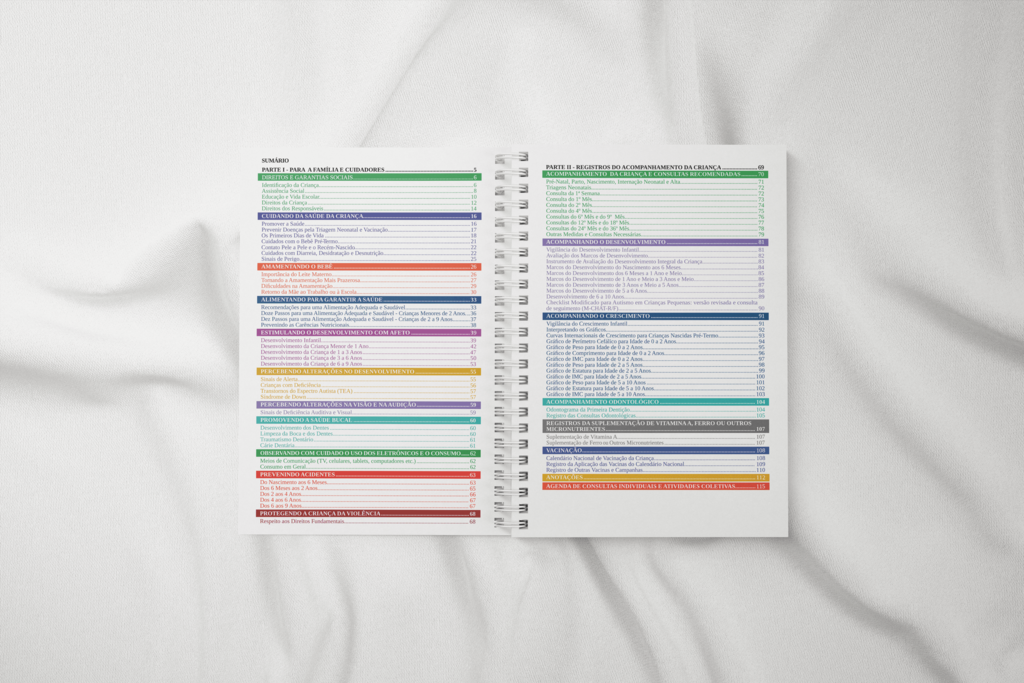 SUMÁRIO
PARTE I - PARA A FAMÍLIA E CUIDADORES 5
DIREITOS E GARANTIAS SOCIAIS 6
Identificação da Criança 6
Assistência Social 8
Educação e Vida Escolar 10
Direitos da Criança 12
Direitos dos Responsáveis 14
CUIDANDO DA SAÚDE DA CRIANÇA 16
Promover a Saúde 16
Prevenir Doenças pela Triagem Neonatal e Vacinação 17
Os Primeiros Dias de Vida 18
Cuidados com o Bebê Pré-Termo 21
Contato Pele a Pele e o Recém-Nascido 22
Cuidados com Diarreia, Desidratação e Desnutrição 22
Sinais de Perigo 25
AMAMENTANDO O BEBÊ 26
Importância do Leite Materno 26
Tornando a Amamentação Mais Prazerosa 27
Dificuldades na Amamentação 29
Retorno da Mãe ao Trabalho ou à Escola 30
ALIMENTANDO PARA GARANTIR A SAÚDE 33
Recomendações para uma Alimentação Adequada e Saudável 33
Doze Passos para uma Alimentação Adequada e Saudável - Crianças Menores de 2 Anos 36
Dez Passos para uma Alimentação Adequada e Saudável - Crianças de 2 a 9 Anos 37
Prevenindo as Carências Nutricionais 38
ESTIMULANDO O DESENVOLVIMENTO COM AFETO 39
Desenvolvimento Infantil 39
Desenvolvimento da Criança Menor de 1 Ano 42
Desenvolvimento da Criança de 1 a 3 Anos 47
Desenvolvimento da Criança de 3 a 6 Anos 50
Desenvolvimento da Criança de 6 a 9 Anos 53
PERCEBENDO ALTERAÇÕES NO DESENVOLVIMENTO 55
Sinais de Alerta 55
Crianças com Deficiência 56
Transtornos do Espectro Autista (TEA) 57
Síndrome de Down 57
PERCEBENDO ALTERAÇÕES NA VISÃO E NA AUDIÇÃO 59
Sinais de Deficiência Auditiva e Visual 59
PROMOVENDO A SAÚDE BUCAL 60
Desenvolvimento dos Dentes 60
Limpeza da Boca e dos Dentes 60
Traumatismo Dentário 61
Cárie Dentária 61
OBSERVANDO COM CUIDADO O USO DOS ELETRÔNICOS E O CONSUMO 62
Meios de Comunicação (TV, celulares, tablets, computadores etc.) 62
Consumo em Geral 62
PREVENINDO ACIDENTES 63
Do Nascimento aos 6 Meses 63
Dos 6 Meses aos 2 Anos 65
Dos 2 aos 4 Anos 66
Dos 4 aos 6 Anos 67
Dos 6 aos 9 Anos 67
PROTEGENDO A CRIANÇA DA VIOLÊNCIA 68
Respeito aos Direitos Fundamentais 68
PARTE II - REGISTROS DO ACOMPANHAMENTO DA CRIANÇA 69
ACOMPANHAMENTO DA CRIANÇA E CONSULTAS RECOMENDADAS 70
Pré-Natal, Parto, Nascimento, Internação Neonatal e Alta 71
Triagens Neonatais 72
Consulta da 1ª Semana 72
Consulta do 1º Mês 73
Consulta do 2º Mês 74
Consulta do 4º Mês 75
Consultas do 6º Mês e do 9º Mês 76
Consultas do 12º Mês e do 18º Mês 77
Consultas do 24º Mês e do 36º Mês 78
Outras Medidas e Consultas Necessárias 79
ACOMPANHANDO O DESENVOLVIMENTO 81
Vigilância do Desenvolvimento Infantil 81
Avaliação dos Marcos do Desenvolvimento 82
Instrumento de Avaliação do Desenvolvimento Integral da Criança 83
Marcos do Desenvolvimento do Nascimento aos 6 Meses 84
Marcos do Desenvolvimento dos 6 Meses a 1 Ano e Meio 85
Marcos do Desenvolvimento de 1 Ano e Meio a 3 Anos e Meio 86
Marcos do Desenvolvimento de 3 Anos e Meio a 5 Anos 87
Marcos do Desenvolvimento de 5 a 6 Anos 88
Desenvolvimento de 6 a 10 Anos 89
Checklist Modificado para Autismo em Crianças Pequenas: versão revisada e consulta
de seguimento (M-CHAT-R/F) 90
ACOMPANHANDO O CRESCIMENTO 91
Vigilância do Crescimento Infantil 91
Interpretando os Gráficos 92
Curvas Internacionais de Crescimento para Crianças Nascidas Pré-Termo 93
Gráfico de Perímetro Cefálico para Idade de 0 a 2 Anos 94
Gráfico de Peso para Idade de 0 a 2 Anos 95
Gráfico de Comprimento para Idade de 0 a 2 Anos 96
Gráfico de IMC para Idade de 0 a 2 Anos 97
Gráfico de Peso para Idade de 2 a 5 Anos 98
Gráfico de Estatura para Idade de 2 a 5 Anos 99
Gráfico de IMC para Idade de 2 a 5 Anos 100
Gráfico de Peso para Idade de 5 a 10 Anos 101
Gráfico de Estatura para Idade de 5 a 10 Anos 102
Gráfico de IMC para Idade de 5 a 10 Anos 103
ACOMPANHAMENTO ODONTOLÓGICO 104
Odontograma da Primeira Dentição 104
Registro das Consultas Odontológicas 105
REGISTROS DA SUPLEMENTAÇÃO DE VITAMINA A, FERRO OU OUTROS
MICRONUTRIENTES 107
Suplementação de Vitamina A 107
Suplementação de Ferro ou Outros Micronutrientes 107
VACINAÇÃO 108
Calendário Nacional de Vacinação da Criança 108
Registro da Aplicação das Vacinas do Calendário Nacional 109
Registro de Outras Vacinas e Campanhas 110
ANOTAÇÕES 112
AGENDA DE CONSULTAS INDIVIDUAIS E ATIVIDADES COLETIVAS 115